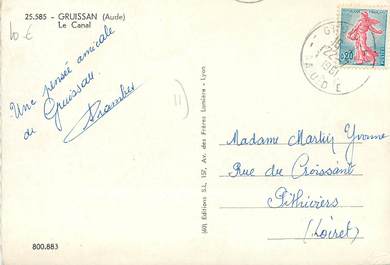 25.585 - GRUISSAN (Aude)
Le Canal
10 €
Une pensée amicale
de Gruissan.
11
(69) Editions S.L., 157, Av. des Frères Lumière - Lyon
0,20
AUDE
Madame Martin Yvonne
Rue du Croissant
Pithiviers
(Loiret)
800.883